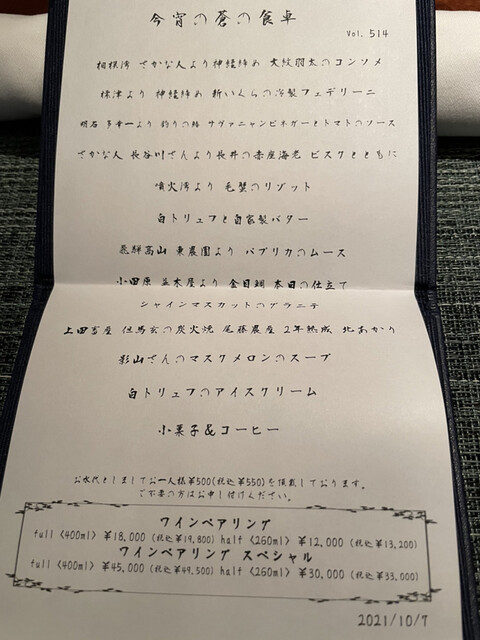 今宵の蒼の食卓
Vol. 514
相模湾 さかな人より神経締め 大紋羽太のコンソメ
標津より 神経締め 新いくらの冷製フェデリーニ
明石 多幸一より 釣りの鯖 サヴァニャンビネガーとトマトのソース
さかな人 長谷川さんより長井の赤座海老 ビスクとともに
噴火湾より 毛蟹のリゾット
白トリュフと自家製バター
飛騨高山 東農園より パプリカのムース
小田原 並木屋より 金目鯛 本日の仕立て
シャインマスカットのグラニテ
上田畜産 但馬玄の炭火焼 尾藤農産 2年熟成 北あかり
影山さんのマスクメロンのスープ
白トリュフのアイスクリーム
小菓子&コーヒー
お水代としましてお一人様¥500(税込¥550)を頂戴しております。
ご不要の方はお申し付けください。
ワインペアリング
full〈400ml〉¥18,000 (税込¥19,800) half〈250ml〉¥12,000 (税込¥13,200)
ワインペアリング スペシャル
full〈400ml〉¥45,000 (税込¥49,500) half〈250ml〉¥30,000 (税込¥33,000)
2021/10/7